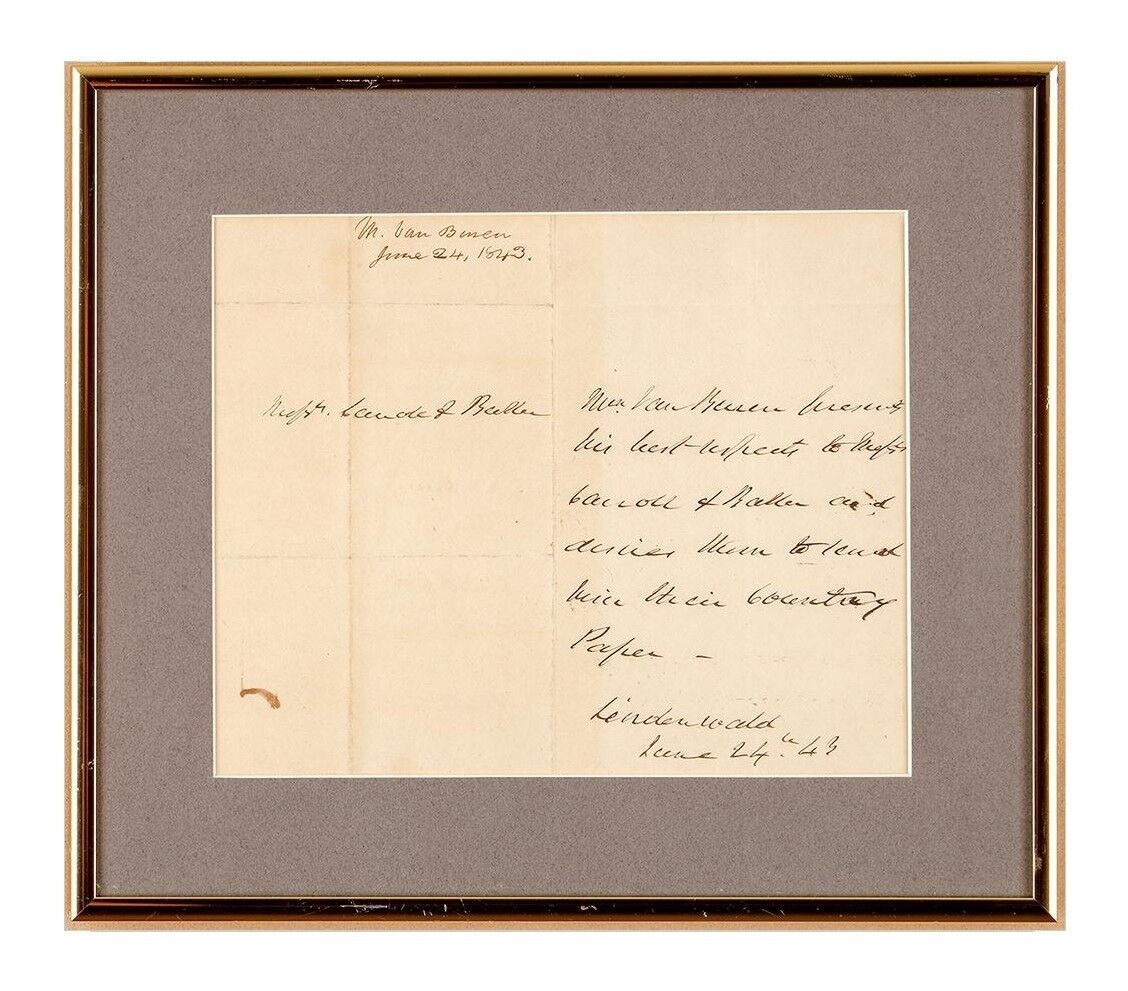 M. Van Buren
June 24, 1843.
Messrs. &
Mr. Van Buren presents
his best respects to Messrs
Carroll & and
desires them to send
him their Country
Paper -
Lindenwald
June 24th. 43